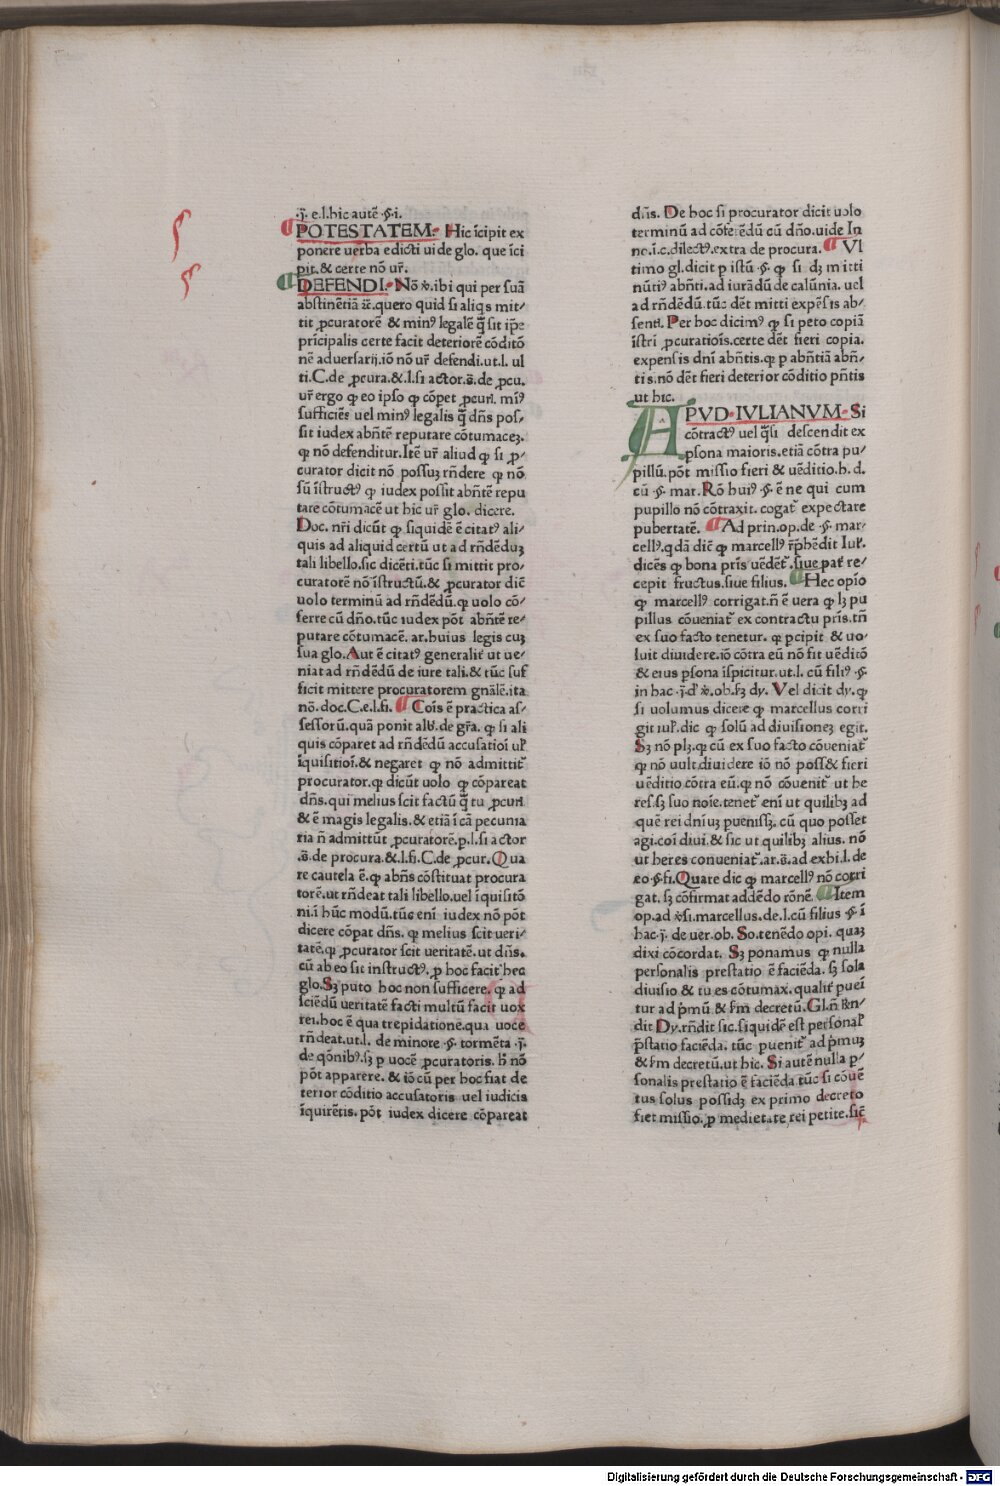 .j̄. e.l.hic autē .§.i.
POTESTATEM. Hic īcipit ex
ponere uerba edicti uide glo. que īci
pit.& certe nō ur̄.
DEFENDI. Nō x̄.ibi qui per suā
abstinētiā ⁊c̄.quero quid si aliqs mit/
tit ꝓcuratorē & minꝰ legalē q̄̄ sit ip̄e
prīcipalis certe facit deteriorē cōditō
nē aduersarij.iō nō ur̄ defendi.ut.l. ul
ti.C.de ꝓcura.&.l.si actor.s̄.de ꝓcu.
ur̄ ergo ꝙ eo ipso ꝙ cōpet ꝓcurͥ. mīꝰ
sufficiēs uel minꝰ legalis q̄̄ dn̄s pos/
sit iudex abn̄tē reputare cōtumaceꝫ.
ꝙ nō defenditur.Itē ur̄ aliud ꝙ si ꝓ/
curator dicit nō possuꝫ rn̄dere ꝙ nō
sū īstructꝰ ꝙ iudex possit abn̄tē repu
tare cōtumacē ut hic ur̄ glo. dicere.
Doc. nr̄i dicūt ꝙ siquidē ē citatꝰ ali/
quis ad aliquid certū ut ad rn̄dēduꝫ
tali libello.sic dicēti.tūc si mittit pro/
curatorē nō īstructū.& ꝓcurator dic̄
uolo terminū ad rn̄dēdū.ꝙ uolo cō/
ferre cū dn̄o.tūc iudex pōt abn̄tē re/
putare cōtumacē. ar.huius legis cuꝫ
sua glo.Aut ē citatꝰ generalit̄ ut ue/
niat ad rn̄dēdū de iure tali.& tūc suf
ficit mittere procuratorem gn̄alē.ita
nō.doc.C.e.l.fi. Cōis ē practica as/
sessorū.quā ponit alb̄.de gr̄a. ꝙ si ali
quis cōparet ad rn̄dēdū accusatioī ul̓
īquisitioī.& negaret ꝙ nō admittit̄
procurator.ꝙ dicūt uolo ꝙ cōpareat
dn̄s.qui melius scit factū q̄̄ tu ꝓcurͥ
& ē magis legalis.& etiā ī cā pecunia
ria n̄ admittūt ꝓcuratorē.p.l.si actor
.s̄.de procura.&.l.fi.C.de ꝓcur.Qua
re cautela ē.ꝙ abn̄s cōstituat procura
torē.ut rn̄deat tali libello.uel īquisitō
ni.ī hūc modū.tūc enī iudex nō pōt
dicere cōpat dn̄s. ꝙ melius scit ueri/
tatē.ꝙ ꝓcurator scit ueritatē.ut dn̄s.
cū ab eo sit instructꝰ. ꝓ hoc facit hec
glo.Sꝫ puto hoc non sufficere. ꝙ ad
sciēdū ueritatē facti multū facit uox
rei.hoc ē qua trepidatione.qua uoce
rn̄deat.ut.l. de minore .§. tormēta .j̄.
de qōnibꝰ.sꝫ ꝑ uocē ꝓcuratoris. h̄ nō
pōt apparere.& iō cū per hoc fiat de
terior cōditio accusatoris uel iudicis
īquirētis.pōt iudex dicere cōpareat
dn̄s. De hoc si procurator dicit uolo
terminū ad cōferēdū cū dn̄o.uide In
no.ī.c.dilectꝰ.extra de procura. Vl
timo gl.dicit ꝑ istū .§. ꝙ si dꝫ mitti
nūtiꝰ abn̄ti.ad iurādū de calūnia. uel
ad rn̄dēdū.tūc dēt mitti expēsis ab/
senti. Per hoc dicimꝰ ꝙ si peto copiā
īstri ꝓcuratiois.certe dēt fieri copia.
expensis dnī abn̄tis.ꝙ ꝑ abn̄tiā abn̄/
tis.nō dēt fieri deterior cōditio pn̄tis
ut hic.
APVD.IVLIANVM. Si
cōtractꝰ uel q̄si descendit ex
ꝑsona maioris.etiā cōtra pu/
pillū.pōt missio fieri & uēditio.h.d.
cū .§. mar. Rō huiꝰ .§. ē ne qui cum
pupillo nō cōtraxit. cogat̄ expectare
pubertatē. Ad prin.op.de .§. mar/
cellꝰ.qdā dic̄ ꝙ marcellꝰ r̄ꝓhēdit Iul̓.
dicēs ꝙ bona pr̄is uēdēt̄.siue pat̓ re/
cepit fructus.siue filius. Hec opīo
ꝙ marcellꝰ corrigat.n̄ ē uera ꝙ lꝫ pu
pillus cōueniat̄ ex contractu pr̄is.tn̄
ex suo facto tenetur. ꝙ ꝑcipit & uo/
luit diuidere.iō cōtra eū nō fit uēditō
& eius ꝑsona īspicitur.ut.l. cū filiꝰ .§.
in hac .j̄.d' x̄.ob.sꝫ dy. Vel dicit dy.ꝙ
si uolumus dicere ꝙ marcellus corri
git iul̓.dic ꝙ solū ad diuisioneꝫ egit.
Sꝫ nō plꝫ.ꝙ cū ex suo facto cōueniat̄
ꝙ nō uult diuidere iō nō poss& fieri
uēditio cōtra eū.ꝙ nō cōuenit̄ ut he
res.sꝫ suo noīe.tenet̄ enī ut quilibꝫ ad
quē rei dn̄iuꝫ ꝑuenissꝫ. cū quo posset
agi.coī diui.& sic ut quilibꝫ alius. nō
ut heres conueniat̄.ar.s̄.ad exhi.l. de
eo.§.fi.Quare dic ꝙ marcellꝰ nō corri
gat. sꝫ cōfirmat addēdo rōnē. Item
op.ad x̄si.marcellus.de.l.cū filius .§. ī
hac .j̄. de uer.ob. So.tenēdo opi. quaꝫ
dixi cōcordat. Sꝫ ponamus ꝙ nulla
personalis prestatio ē faciēda. sꝫ sola
diuisio & tu es cōtumax.qualit̄ pueī
tur ad p̄mū & s̄m decretū.Gl.n̄ rn̄/
dit Dy.rn̄dit sic.siquidē est personal̓
p̄statio faciēda. tūc ꝑuenit̄ ad p̄muꝫ
& s̄m decretū.ut hic. Si autē nulla ꝑ/
sonalis prestatio ē faciēda.tūc si cōuē
tus solus possidꝫ ex primo decreto
fiet missio. ꝓ medietate rei petite.sic̄
Digitalisierung gefördert durch die Deutsche Forschungsgemeinschaft - DFG